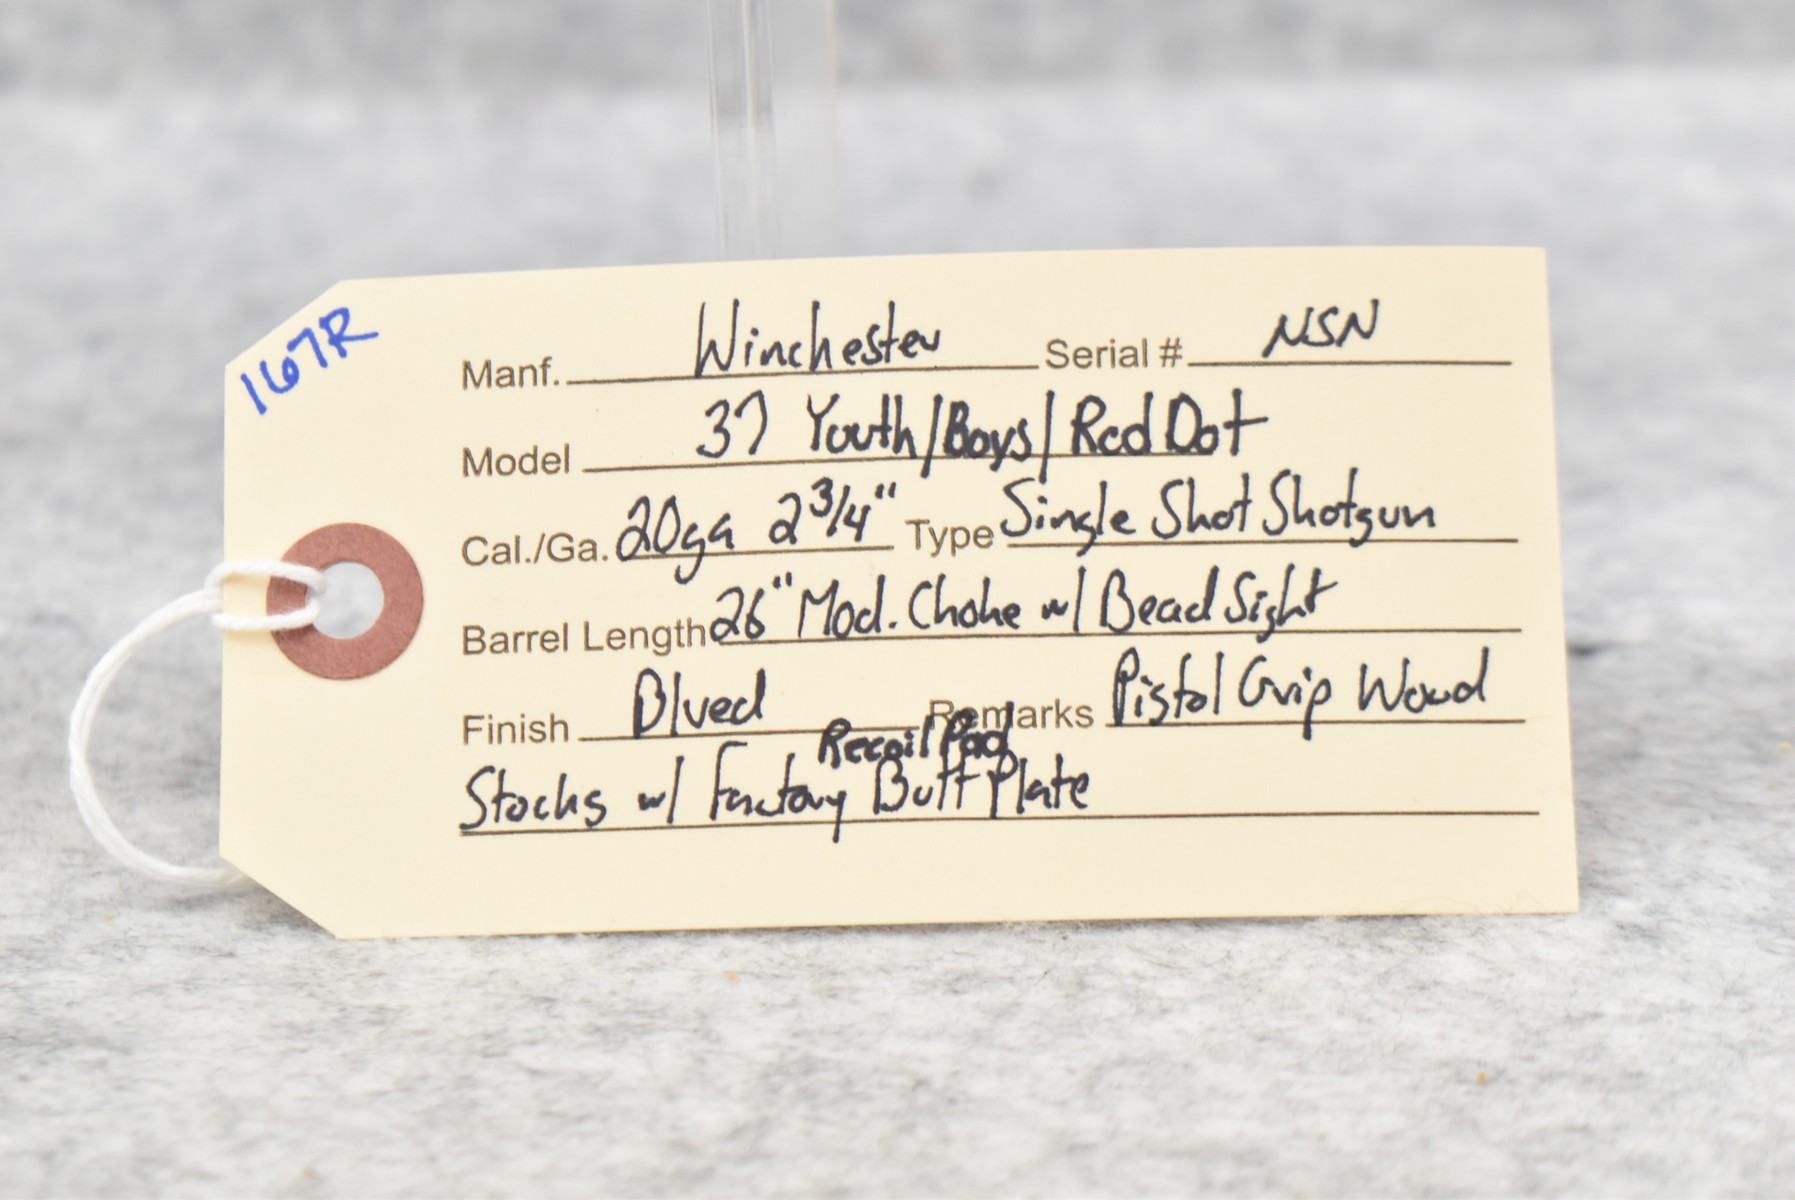 167R
Manf. Winchester Serial # NSN
Model 37 Youth/Boys/Red Dot
Cal./Ga. 20ga 2 3/4" Type Single Shot Shotgun
Barrel Length 26" Mod. Choke w/ Bead Sight
Finish Blued Remarks Pistol Grip Wood
Recoil Pad
Stocks w/ Factory Butt Plate